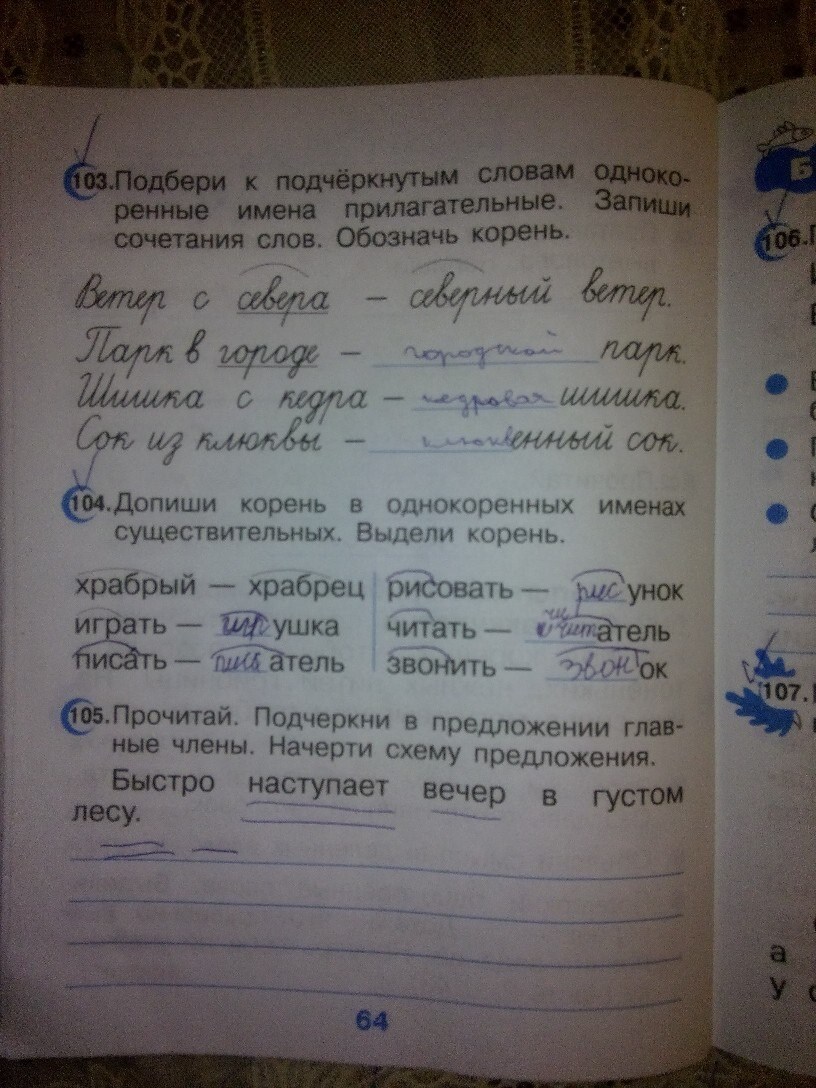 103. Подбери к подчёркнутым словам одноко-
ренные имена прилагательные. Запиши
сочетания слов. Обозначь корень.
Ветер с севера – северный ветер.
Парк в городе – городской парк.
Шишка с кедра – кедровая шишка.
Сок из клюквы – клюквенный сок.
104. Допиши корень в однокоренных именах
существительных. Выдели корень.
храбрый — храбрец
играть — игрушка
писать — писатель
рисовать — рисунок
читать — читатель
звонить — звонок
105. Прочитай. Подчеркни в предложении глав-
ные члены. Начерти схему предложения.
Быстро наступает вечер в густом
лесу.
64
Б
106.
107.
а
у